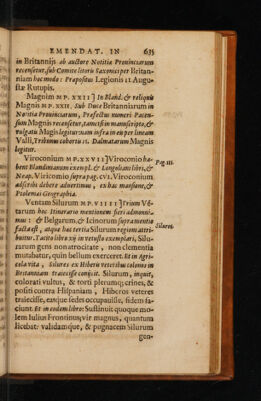 EMENDAT. IN 635
in Britannijs ab auctore Notitia Prouinciarum
recensetur, sub Comite litoris Saxonici per Britan-
niam hoc modo: Præpositus Legionis II. Augu-
stæ Rutupis.
Magnim M P. XXII] In Bland. & reliquis
Magnis M P. XXII. Sub Duce Britanniarum in
Notitia Prouinciarum, Præfectus numeri Pacen-
sium Magnis recensetur, tametsi in manuscripto, &
vulgatu Magis legitur: nam infra in eo per lineam
Valli, Tribunus cohortis II. Dalmatarum Magnis
legitur.
Viroconium M P. XXVII] Viroconio ha-
bent Blandinianum exempl. & Longolianus libri, &
Neap. Viricomio supra pag. CVI. Viroconium
adscribi debere aduertimus, ex hac mansione, &
Ptolemæi Geographia.
Pag. III.
Ventam Silurum M P. VIIII] Trium Ve-
tarum hoc Itinerario mentionem fieri admonui-
mus: & Belgarum, & Icinorum supra mentio
facta est, atque hæc tertia Silurum regioni attri-
buitur. Tacito libro XII in vetustis exemplari, Silu-
rum gens non atrocitate, non clementia
mutabatur, quin bellum exerceret. Et in Agri-
cola vita, Silures ex Hiberis veteribus colonos in
Britanniam traiecisse conijcit. Silurum, inquit,
colorati vultus, & torti plerumq; crines, &
positi contra Hispaniam, Hiberos veteres
traiecisse, easque sedes occupauisse, fidem fa-
ciunt. Et in eodem libro: Sustinuit quoque mo-
lem Iulius Frontinus, vir magnus, quantum
licebat: validamque, & pugnacem Silurum
Silures.
gen-